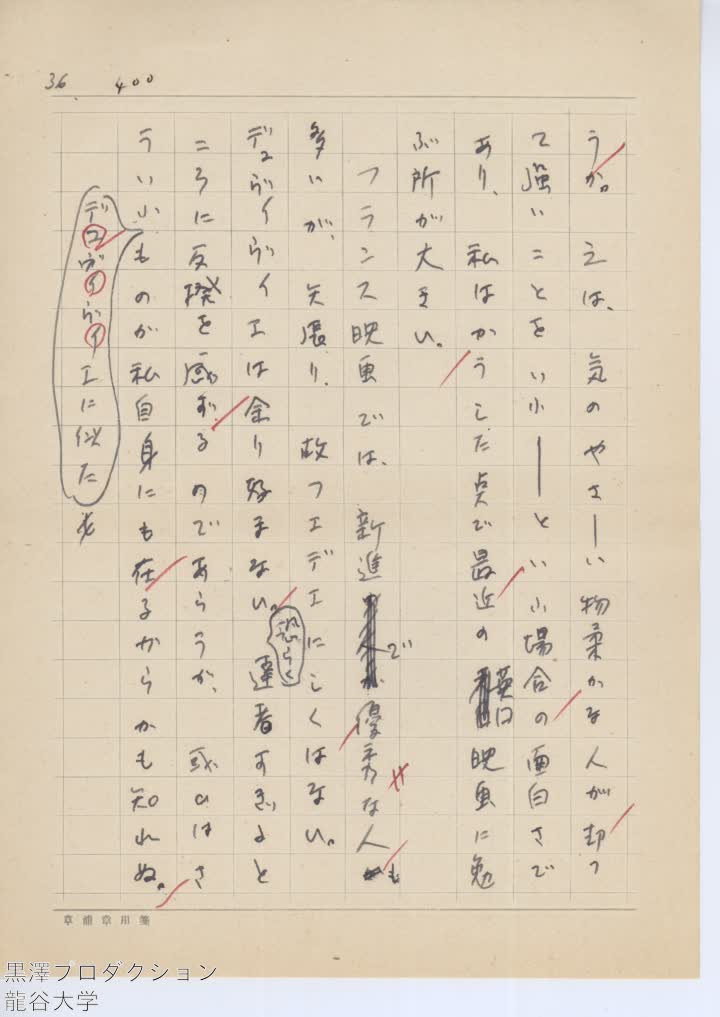 36 400
うか。之は、気のやさしい物柔かな人が却つ
て強いことをいふ――といふ場合の面白さで
あり、私はかうした点で最近の英国映画に勉
ぶ所が大きい。
フランス映画では、新進で優秀な人も
多いが、矢張り、故フエデエにしくはない。
デュヴィヴィエは余り好まない。恐らく達者すぎると
ころに反撥を感ずるのであらうか、或ひはさ
ういふデュヴィヴィエに似たものが私自身にも在るからかも知れぬ。
草浦章用箋
黒澤プロダクション
龍谷大学